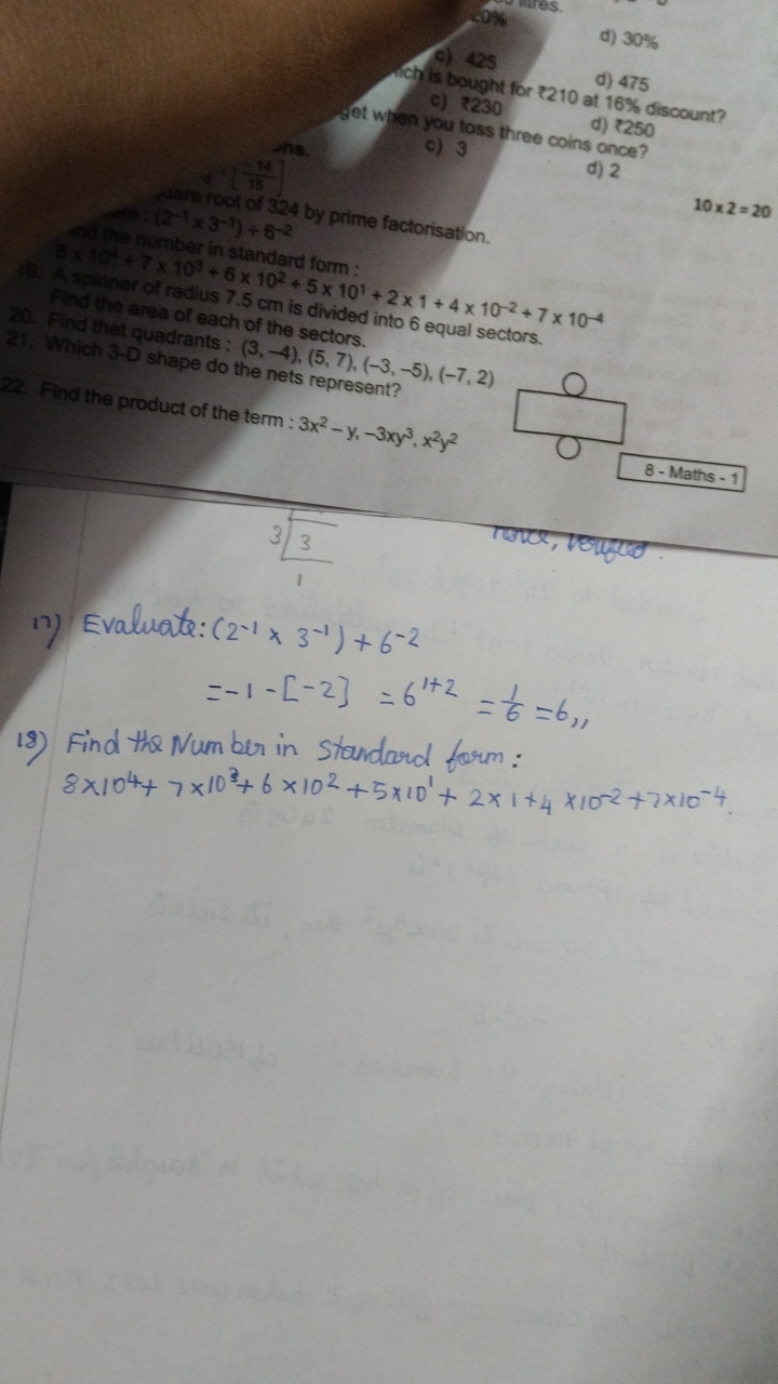 litres.
20%
d) 30%
c) 425
d) 475
is bought for ₹210 at 16% discount?
c) ₹230
d) ₹250
get when you toss three coins once?
c) 3
d) 2
10 x 2 = 20
-14
15
root of 324 by prime factorisation.
: (2⁻¹ x 3⁻¹) ÷ 6⁻²
the number in standard form :
8 x 10⁴ + 7 x 10³ + 6 x 10² + 5 x 10¹ + 2 x 1 + 4 x 10⁻² + 7 x 10⁻⁴
19. A spinner of radius 7.5 cm is divided into 6 equal sectors.
Find the area of each of the sectors.
20. Find that quadrants : (3, –4), (5, 7), (–3, –5), (–7, 2)
21. Which 3-D shape do the nets represent?
22. Find the product of the term : 3x² – y, –3xy³, x²y²
8 - Maths - 1
3 3
1
hence, verified.
17) Evaluate: (2⁻¹ x 3⁻¹) + 6⁻²
= -1 - [-2] = 6¹⁺² = 1/6 = 6,,
18) Find the Number in standard form :
8x10⁴+ 7x10³+ 6 x10² +5x10¹ + 2x1+4 x10⁻² +7x10⁻⁴.